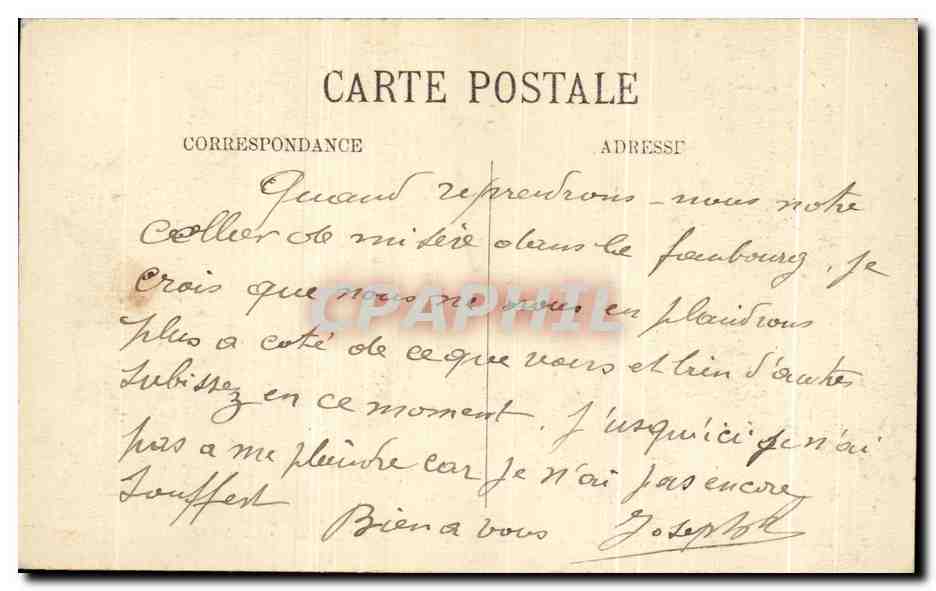 CARTE POSTALE
CORRESPONDANCE
ADRESSE
Quand reprendrons-nous notre
collier de misère dans le faubourg. je
crois que nous ne nous en plaidrons
plus a coté de ce que vous et bien d'autres
subissez en ce moment. J'usqu'ici je n'ai
pas a me plaindre car je n'ai pas encore
souffert
Bien a vous Joseph
CPAPHIL